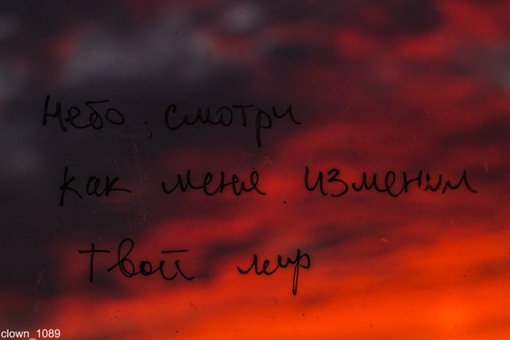 Небо, смотри
как меня изменил
твой мир
clown_1089